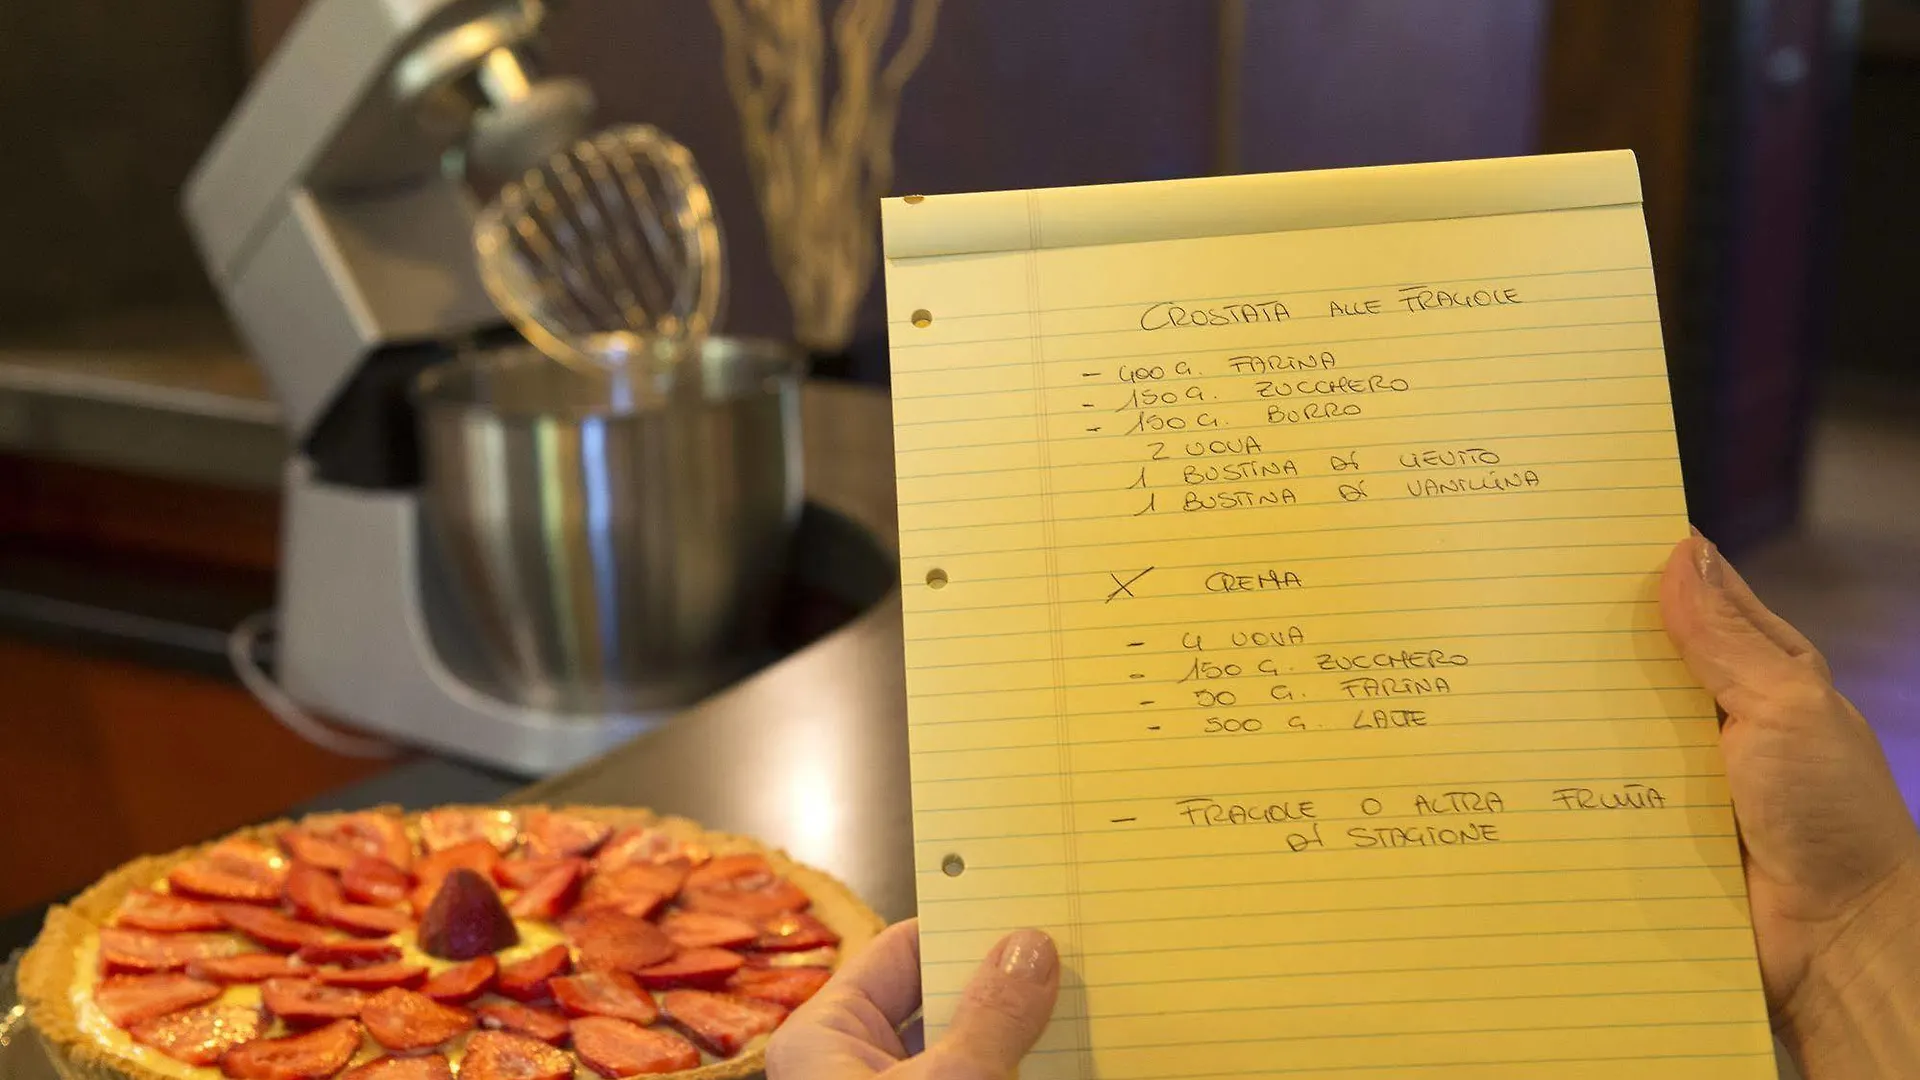 CROSTATA ALLE FRAGOLE
- 400 G. FARINA
- 150 G. ZUCCHERO
- 150 G. BURRO
2 UOVA
1 BUSTINA DI LIEVITO
1 BUSTINA DI VANILLINA
X CREMA
- 4 UOVA
- 150 G. ZUCCHERO
- 50 G. FARINA
- 500 G. LATTE
- FRAGOLE O ALTRA FRUTTA
DI STAGIONE